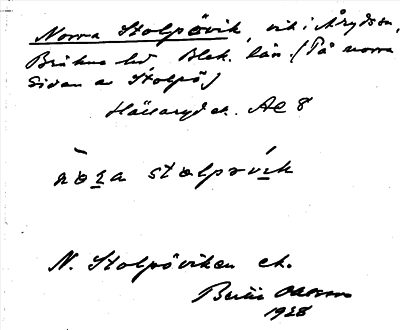 Norra Stolpövik, vik i Årydsån,
Bräkne hd, Blek. län. (På norra
sidan av Stolpö)
Hällaryd ek. Ae 8
nōra stolpövik
N. Stolpöviken ek.
1928